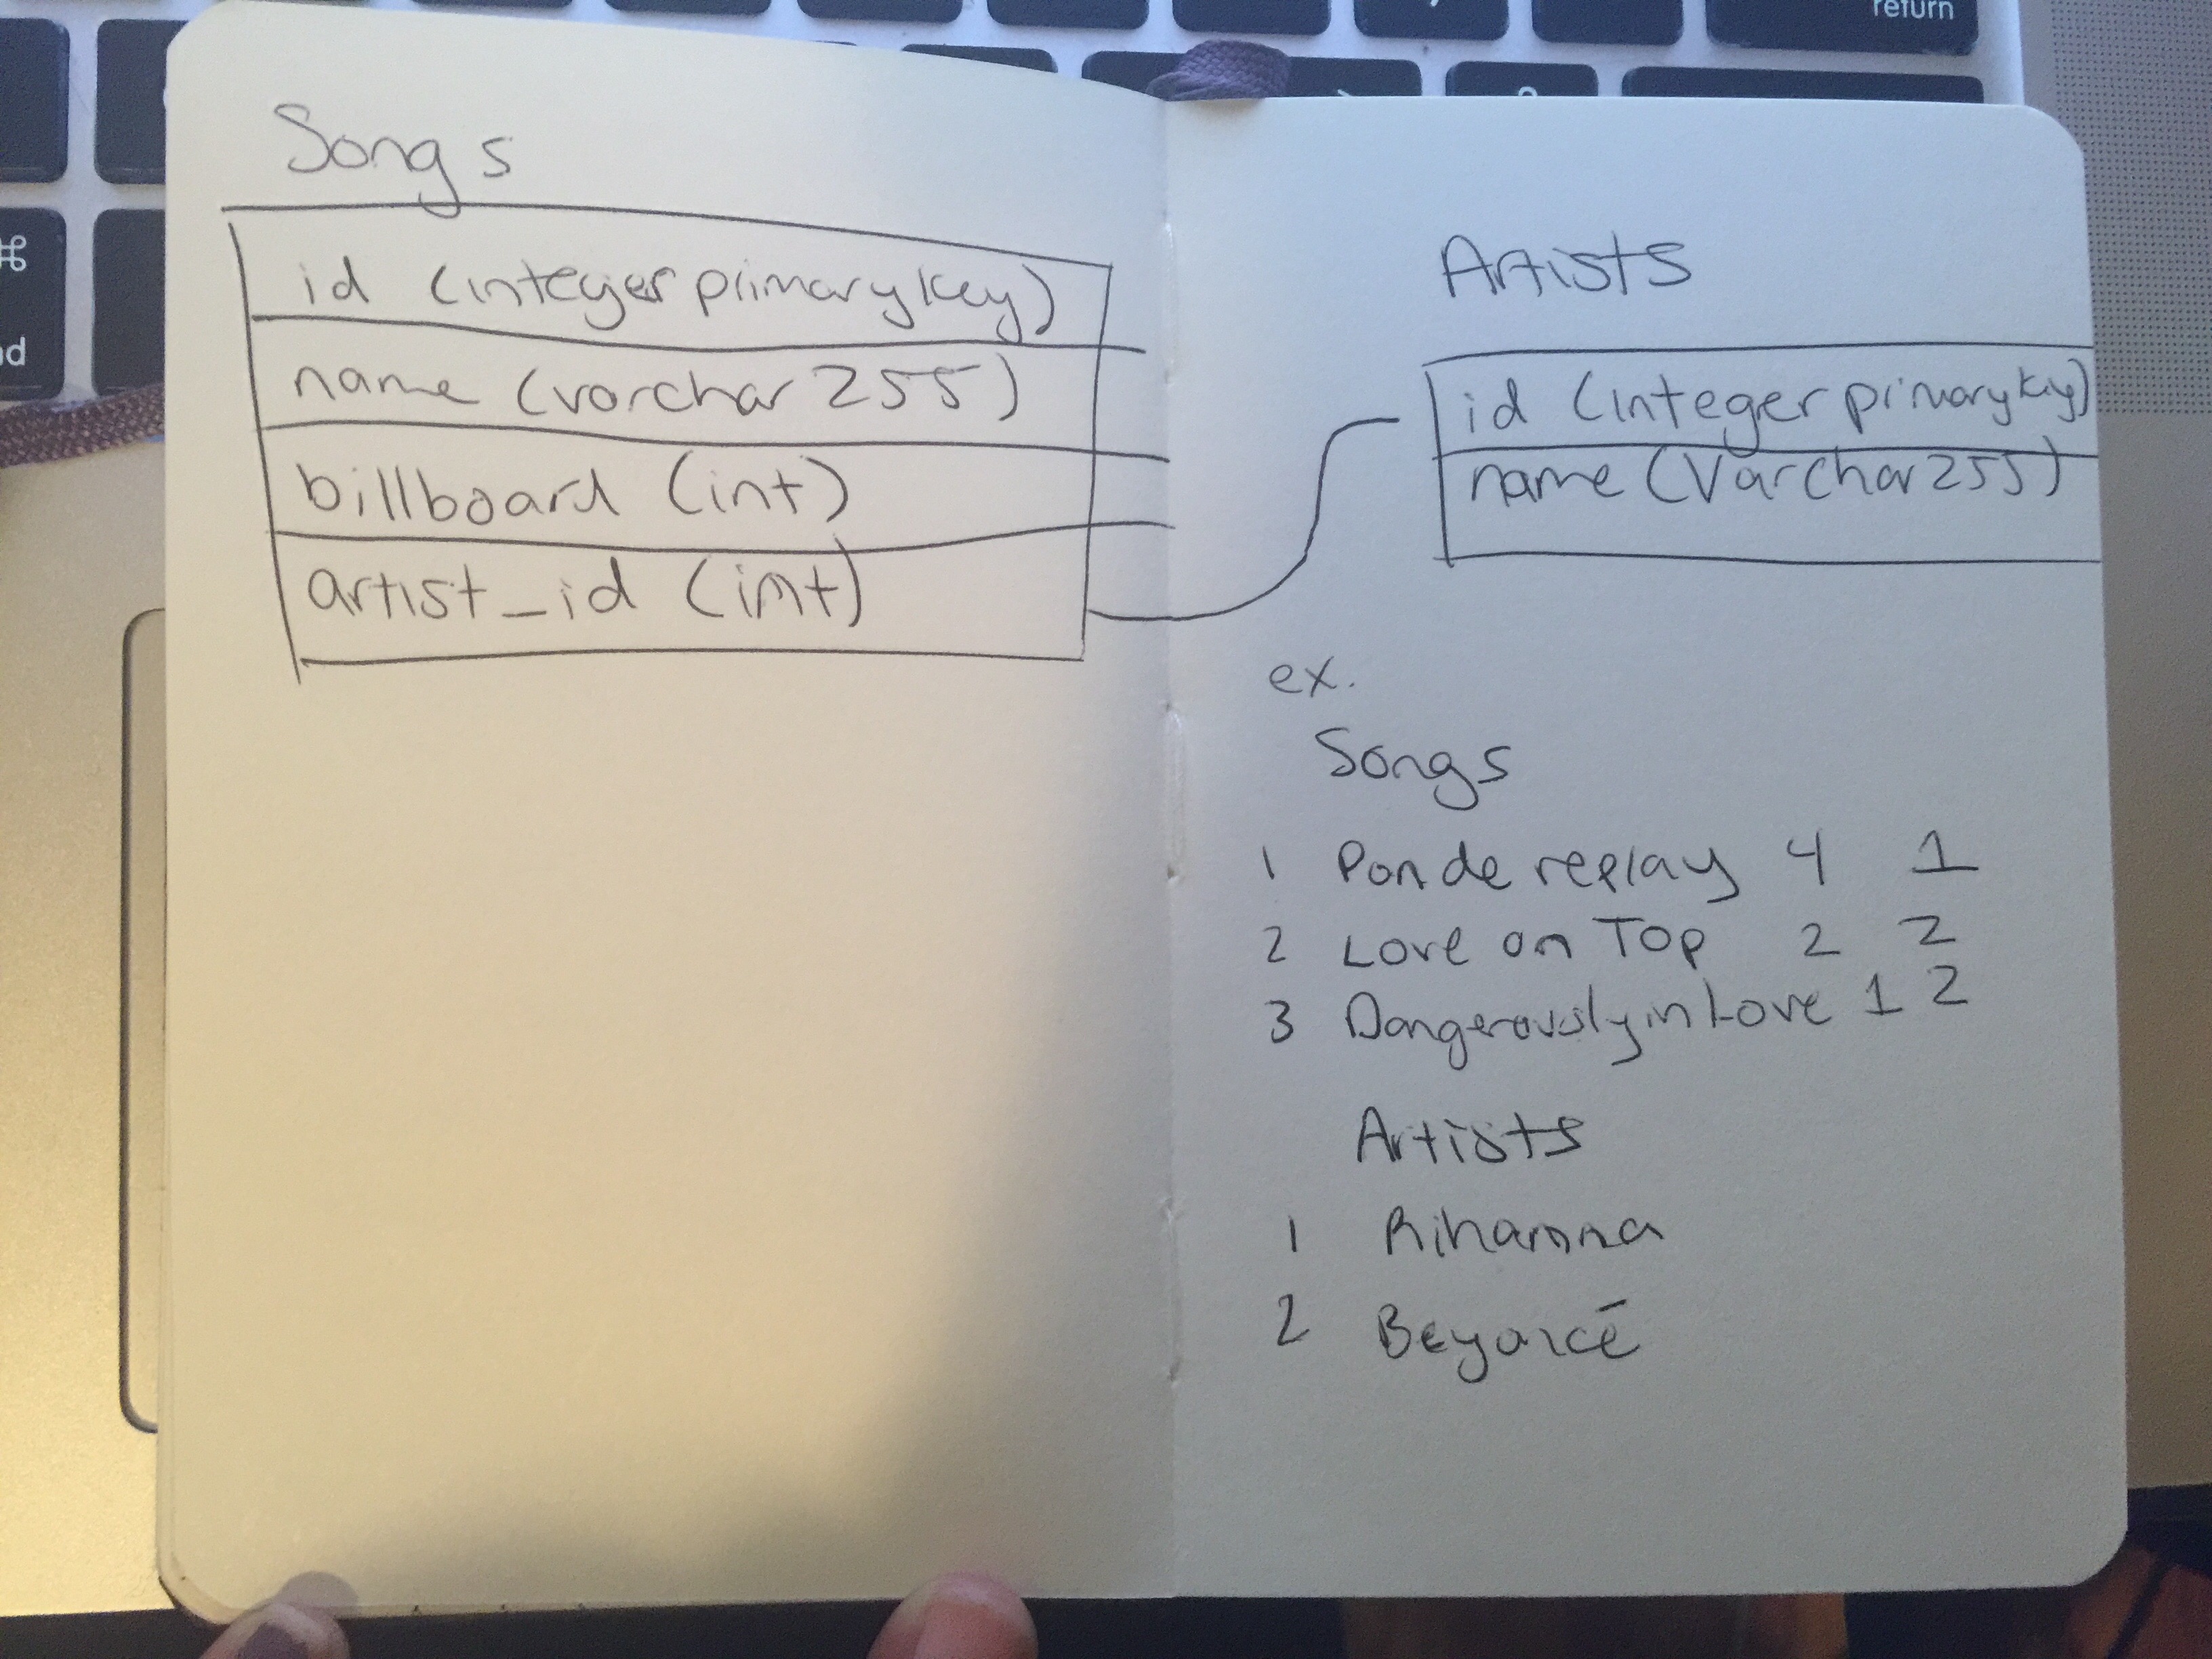 return
⌘
nd
Songs
id (integer primary key)
name (varchar 255)
billboard (int)
artist_id (int)
Artists
id (integer primary key)
name (Varchar 255)
ex.
Songs
1 Pon de replay 4 1
2 Love on Top 2 2
3 Dangerously in Love 1 2
Artists
1 Rihanna
2 Beyoncé